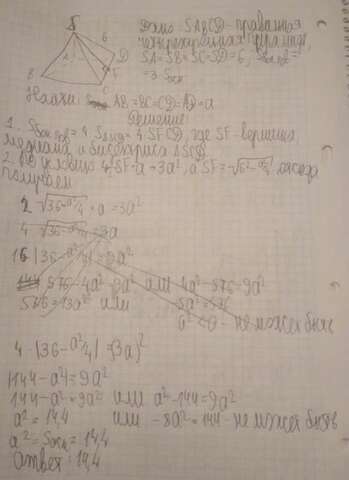 S
6
A
D
F
B
C
Дано SABCD - правильная
четырёхугольная пирамида,
SA=SB=SC=SD=6, Sбок.пов=
=3 Sосн
Найти: AB=BC=CD=AD=a
Решение:
1. Sбок.пов = 4 SF CD, где SF -
медиана и биссектриса ΔSCD
2. По условию 4 SF·a = 3a², а SF = √6²-a²/4, отсюда
получаем
2 √36-a²/4 · a = 3a²
4 √36-a²/4 = 9a
16 |36-a²/4| = 9a²
144 576-4a²=9a² или 4a²-576=9a²
576=13a² или -5a²=576
a²<0 - не может быть
4·|36-a²/4|=(3a)²
|144-a²|=9a²
144-a²=9a² или a²-144=9a²
a²=14,4 или -8a²=144 - не может быть
a²=Sосн=14,4
Ответ: 14,4